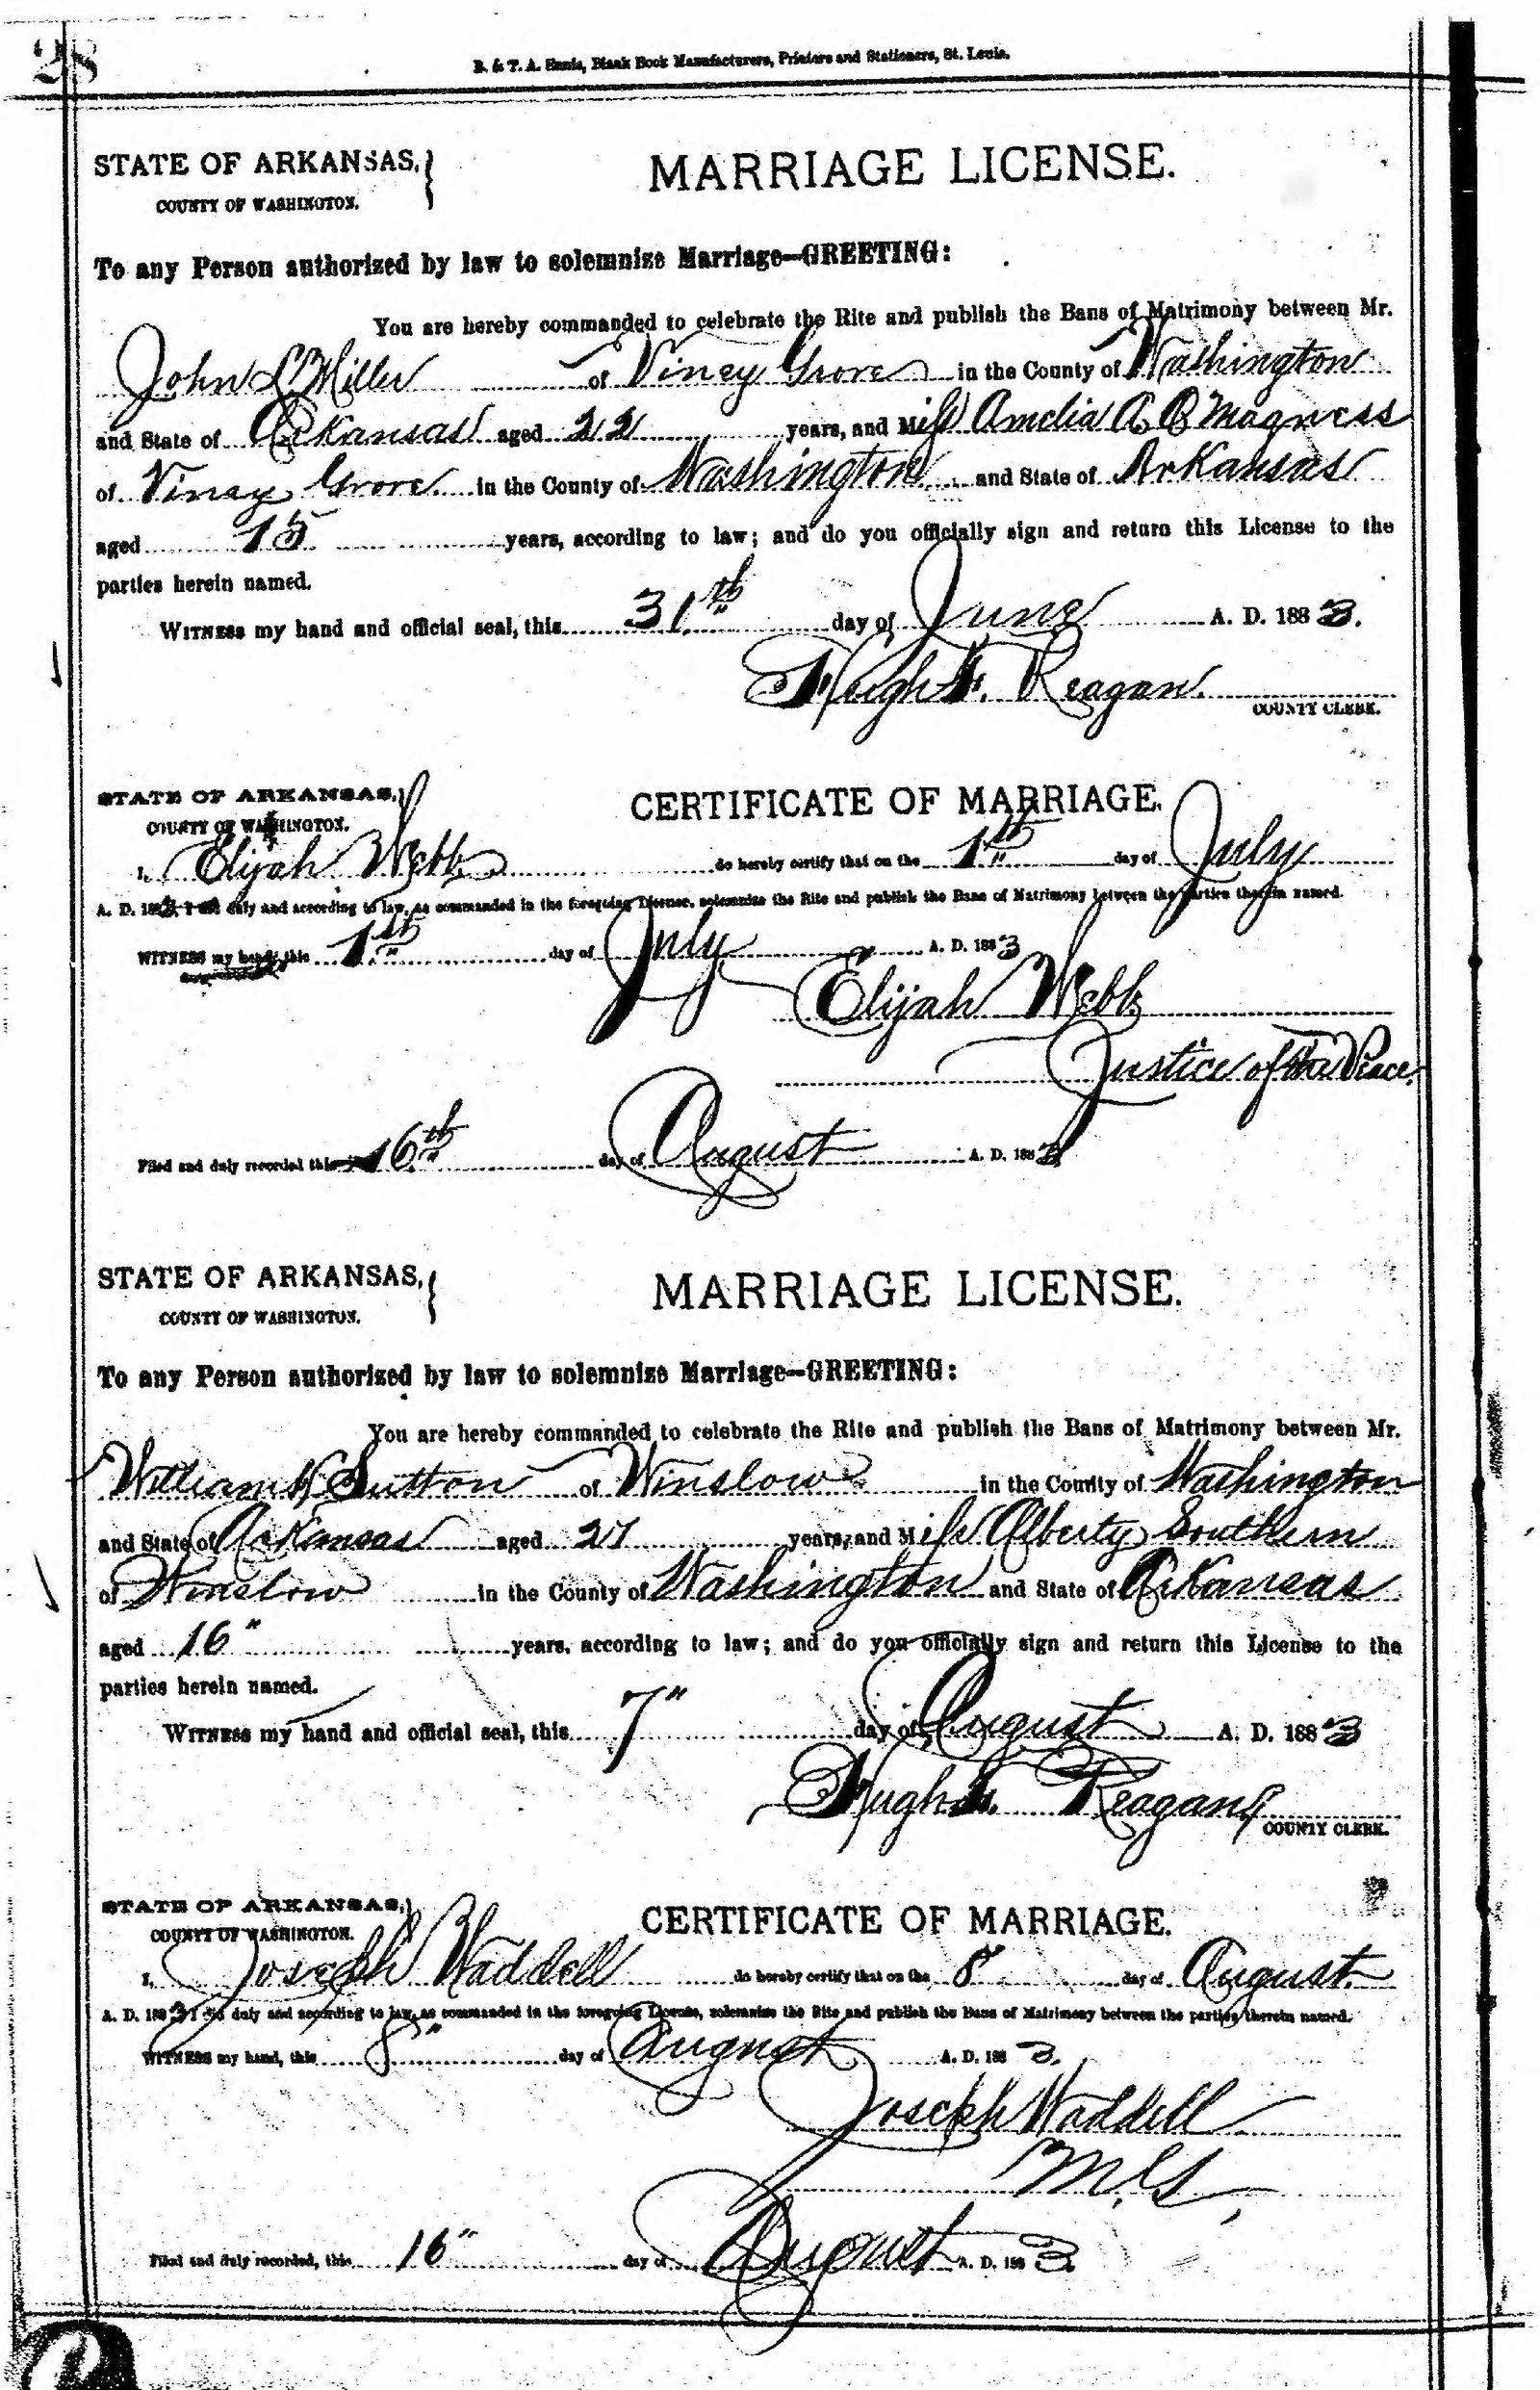 28
B. & T. A. Ennis, Blank Book Manufacturers, Printers and Stationers, St. Louis.
STATE OF ARKANSAS, MARRIAGE LICENSE.
COUNTY OF WASHINGTON.
To any Person authorized by law to solemnize Marriage—GREETING:
You are hereby commanded to celebrate the Rite and publish the Bans of Matrimony between Mr.
John L Miller of Viney Grove in the County of Washington
and State of Arkansas aged 22 years, and Miss Amelia A. C. Magness
of Viney Grove in the County of Washington and State of Arkansas
aged 15 years, according to law; and do you officially sign and return this License to the
parties herein named.
WITNESS my hand and official seal, this 31th day of June A. D. 1883.
Hugh F. Reagan.
COUNTY CLERK.
STATE OF ARKANSAS, CERTIFICATE OF MARRIAGE.
COUNTY OF WASHINGTON.
I, Elijah Webb do hereby certify that on the 1st day of July
A. D. 1883, I did duly and according to law, as commanded in the foregoing License, solemnize the Rite and publish the Bans of Matrimony between the parties therein named.
WITNESS my hand, this 1st day of July A. D. 1883
Elijah Webb
Justice of the Peace.
Filed and duly recorded this 16th day of August A. D. 1883
STATE OF ARKANSAS, MARRIAGE LICENSE.
COUNTY OF WASHINGTON.
To any Person authorized by law to solemnize Marriage—GREETING:
You are hereby commanded to celebrate the Rite and publish the Bans of Matrimony between Mr.
William H Sutton of Winslow in the County of Washington
and State of Arkansas aged 21 years, and Miss Alberty Southern
of Winslow in the County of Washington and State of Arkansas
aged 16" years, according to law; and do you officially sign and return this License to the
parties herein named.
WITNESS my hand and official seal, this 7" day of August A. D. 1883
Hugh F. Reagan
COUNTY CLERK.
STATE OF ARKANSAS, CERTIFICATE OF MARRIAGE.
COUNTY OF WASHINGTON.
I, Joseph Waddell do hereby certify that on the 8 day of August
A. D. 1883 I did duly and according to law, as commanded in the foregoing License, solemnize the Rite and publish the Bans of Matrimony between the parties therein named.
WITNESS my hand, this 8" day of August A. D. 1883.
Joseph Waddell
M. G,
Filed and duly recorded, this 16" day of August A. D. 1883.